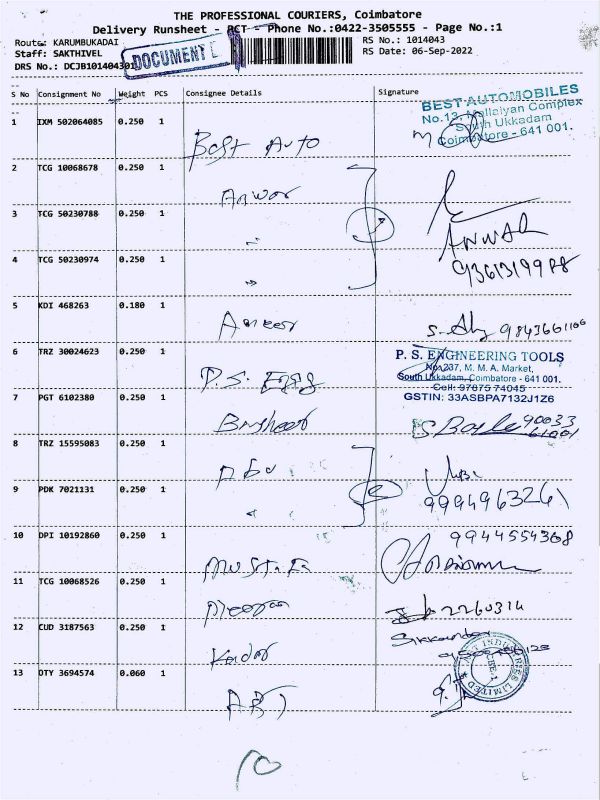 THE PROFESSIONAL COURIERS, Coimbatore
Delivery Runsheet - PCT - Phone No.:0422-3505555 - Page No.:1
Route: KARUMBUKADAI
RS No.: 1014043
Staff: SAKTHIVEL
RS Date: 06-Sep-2022
DRS No.: DCJB101404301
DOCUMENT
S No Consignment No Weight PCS Consignee Details Signature
BEST AUTOMOBILES
No.13, Mallaiyan Complex
South Ukkadam
Coimbatore - 641 001.
1 IXM 502064085 0.250 1
Best Auto
2 TCG 10068678 0.250 1
Anwar
3 TCG 50230788 0.250 1
ANWAR
4 TCG 50230974 0.250 1
5 KDI 468263 0.180 1
Ameer
6 TRZ 30024623 0.250 1
P.S. Engg
P. S. ENGINEERING TOOLS
No. 237, M. M. A. Market,
South Ukkadam, Coimbatore - 641 001.
Cell: 97875 74045
GSTIN: 33ASBPA7132J1Z6
7 PGT 6102380 0.250 1
Basheer
90033
8 TRZ 15595083 0.250 1
Abu
9 PDK 7021131 0.250 1
9994963261
10 DPI 10192860 0.250 1
9944554368
11 TCG 10068526 0.250 1
2260314
12 CUD 3187563 0.250 1
Kadar
Sikkandar
13 OTY 3694574 0.060 1
10